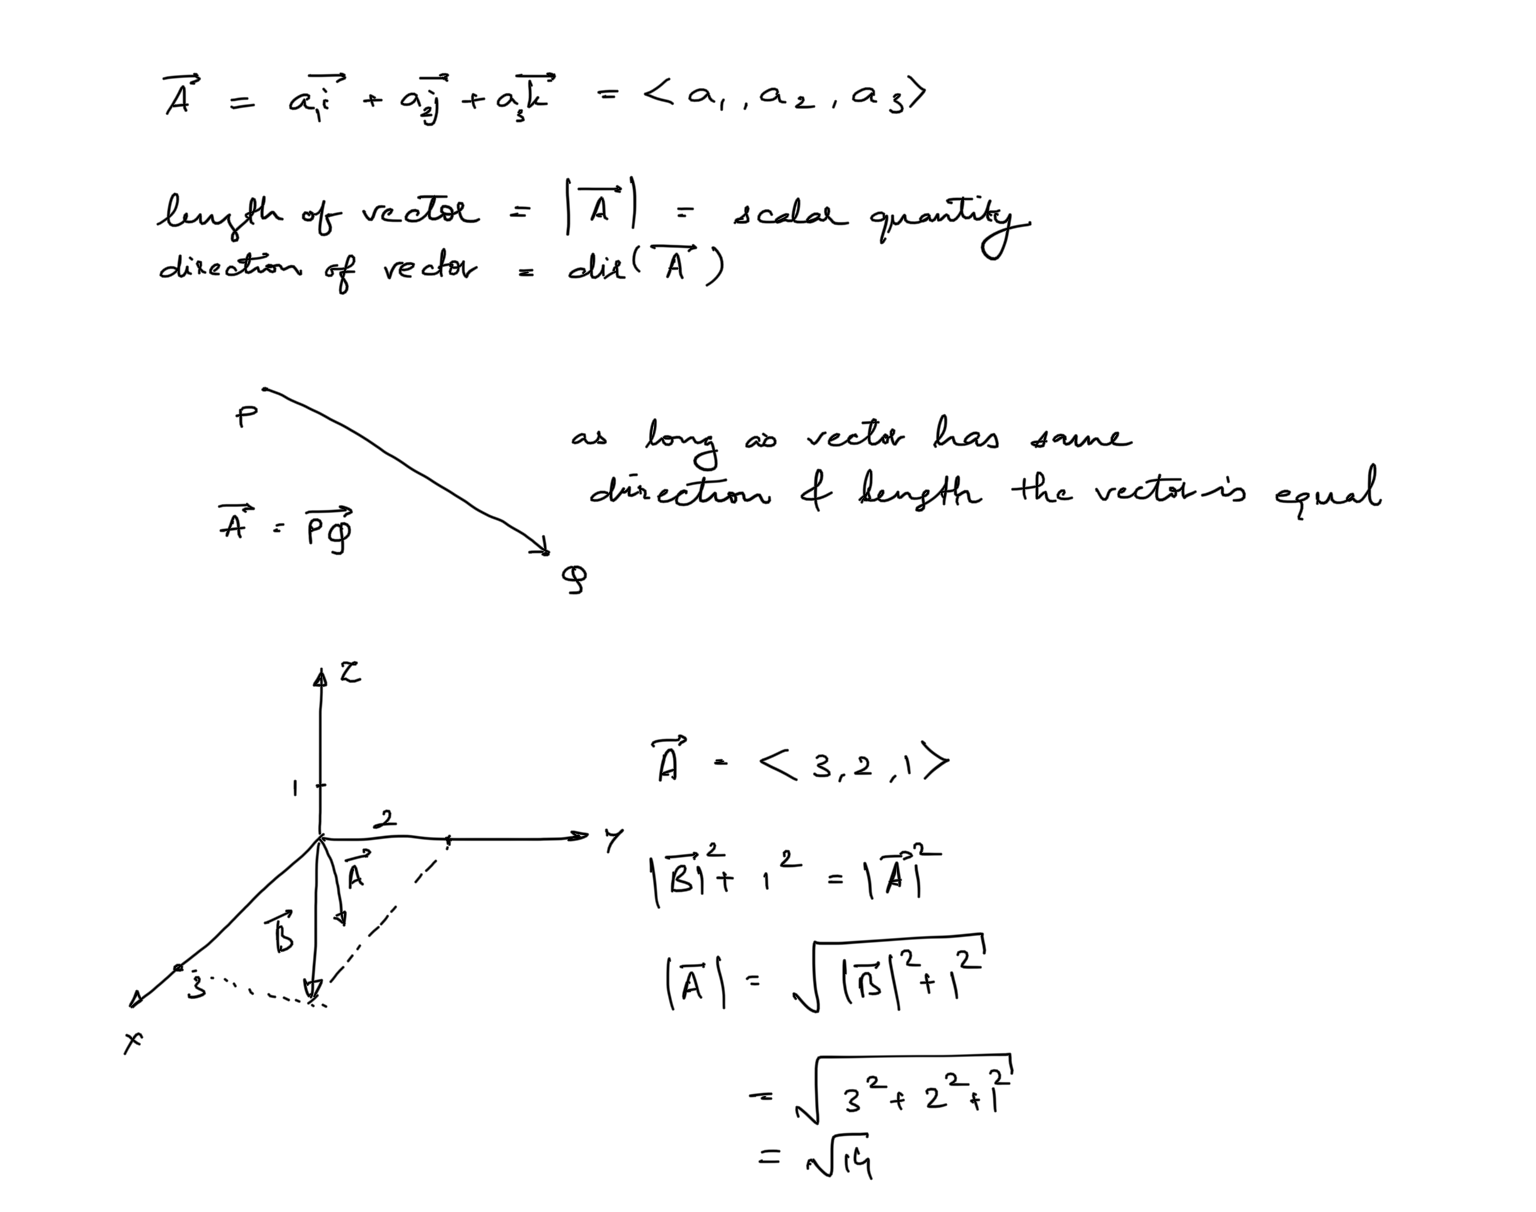 A⃗ = a₁i⃗ + a₂j⃗ + a₃k⃗ = <a₁, a₂, a₃>
length of vector = |A⃗| = scalar quantity
direction of vector = dir(A⃗)
P
as long as vector has same
direction & length the vector is equal
A⃗ = PQ⃗
Q
Z
1
2
Y
A⃗
B⃗
3
X
A⃗ = <3,2,1>
|B⃗|² + 1² = |A⃗|²
|A⃗| = √(|B⃗|² + 1²)
= √(3² + 2² + 1²)
= √14